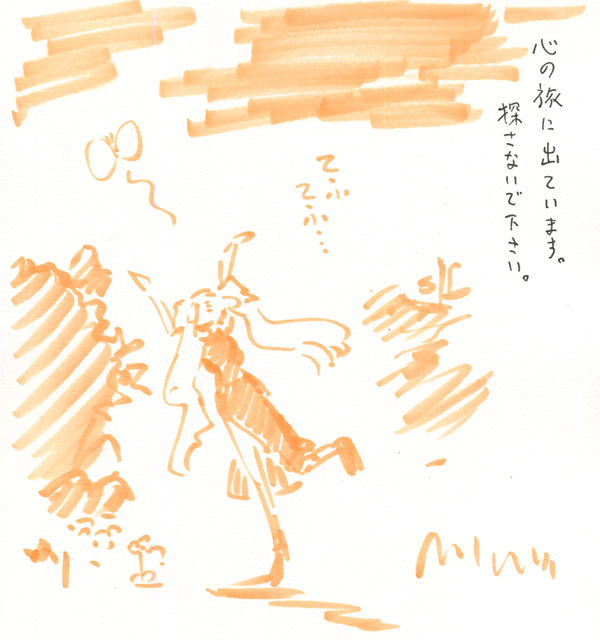 心の旅に出ています。
探さないで下さい。
てふ
てふ…